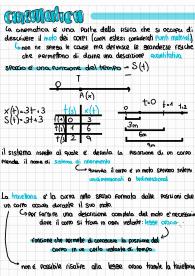 cinematica
La cinematica è una parte della fisica che si occupa di
descrivere il moto dei corpi (corpi estesi considerati punti materiali).
non ne spiega le cause ma definisce le grandezze fisiche
che permettono di darne una descrizione quantitativa.
spazio è una funzione del tempo → S(t)
X(t)=3t+3
S(t)=3t+3
t(s) X(t)
t=0
3m
6m
9m
il sistema rispetto al quale è definita la posizione di un corpo
prende il nome di sistema di riferimento
quando il corpo è in moto avremo sistemi
unidimensionali o bidimensionali
La traiettoria è la curva nello spazio formata dalle posizioni che
un corpo assume durante il suo moto.
per fornire una descrizione completa del moto è necessario
dove il corpo si trova in ogni istante: legge oraria
funzione che permette di conoscere la posizione del
corpo in un certo istante di tempo.
non è possibile risalire alla legge oraria tramite la traiettoria